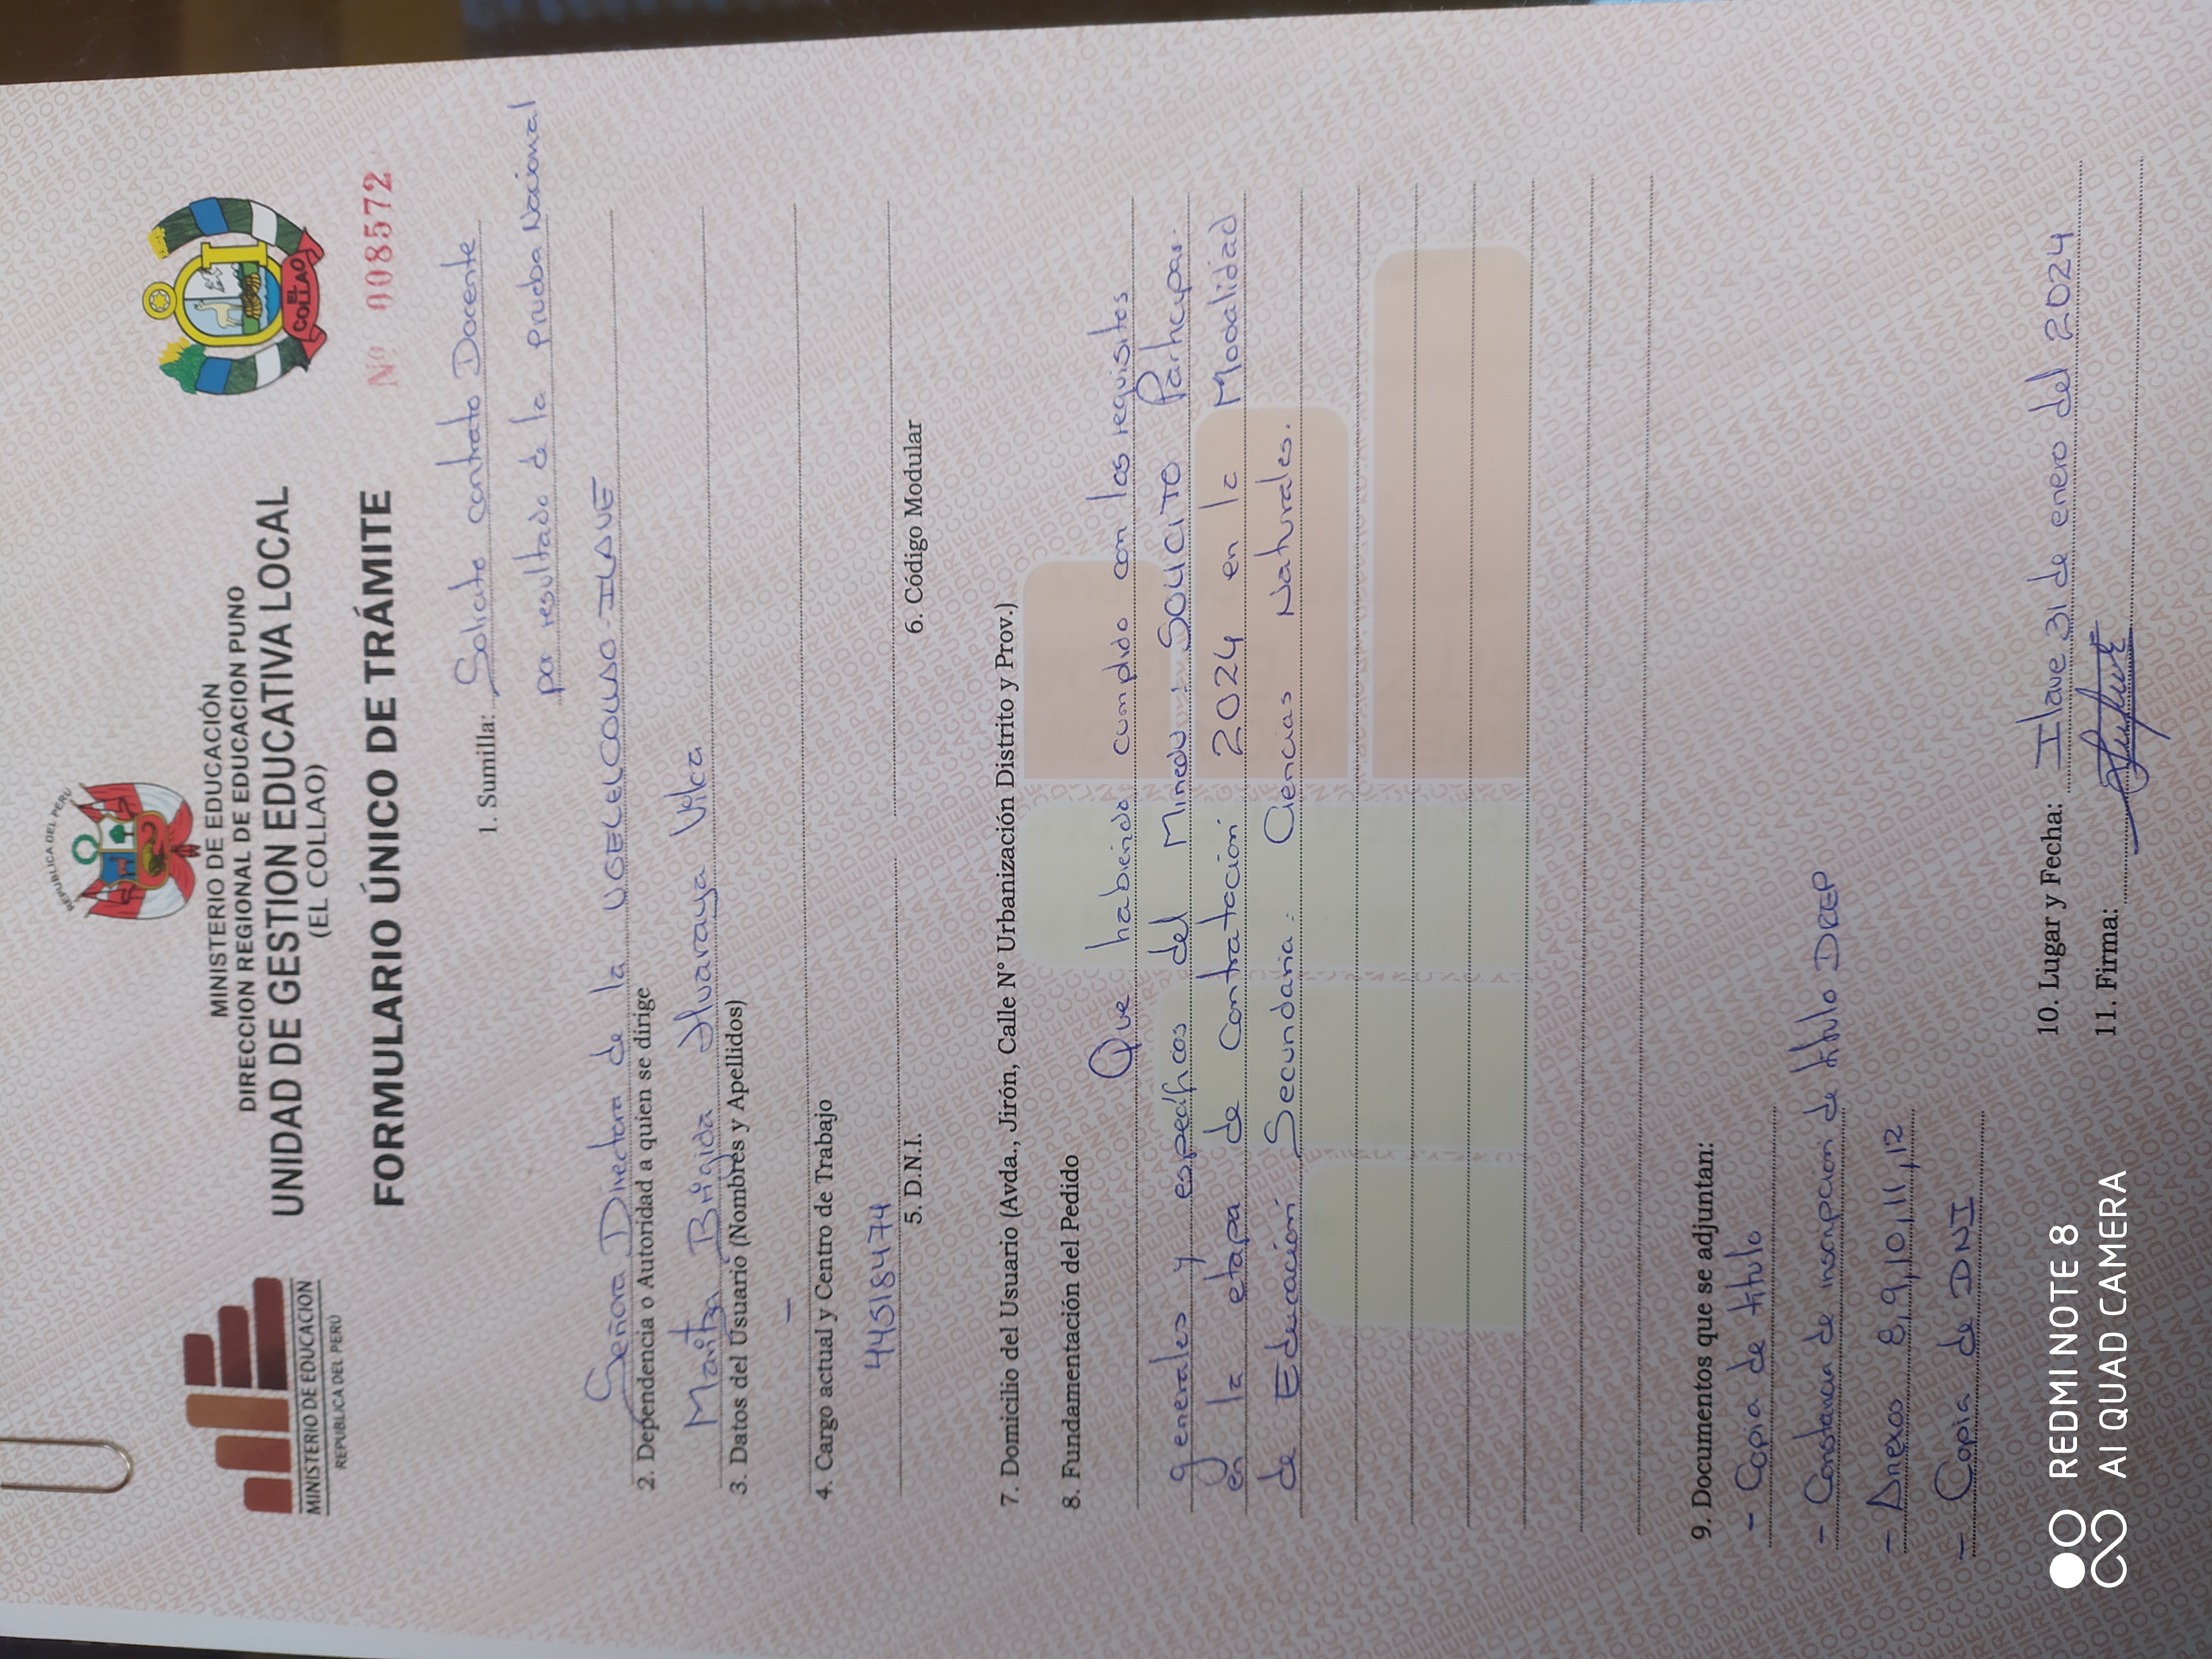 REPUBLICA DEL PERU
MINISTERIO DE EDUCACION
REPUBLICA DEL PERU
MINISTERIO DE EDUCACIÓN
DIRECCION REGIONAL DE EDUCACION PUNO
UNIDAD DE GESTION EDUCATIVA LOCAL
(EL COLLAO)
EL COLLAO
FORMULARIO ÚNICO DE TRÁMITE
Nº 008572
1. Sumilla: Solicito contrato Docente
por resultado de la prueba Nacional
Señora Directora de la UGEL COLLAO - ILAVE
2. Dependencia o Autoridad a quien se dirige
Maritza Brigida Huaraya Vilca
3. Datos del Usuario (Nombres y Apellidos)
-
4. Cargo actual y Centro de Trabajo
44518474
5. D.N.I.
6. Código Modular
7. Domicilio del Usuario (Avda., Jirón, Calle N° Urbanización Distrito y Prov.)
8. Fundamentación del Pedido
Que habiendo cumplido con los requisitos
generales y específicos del Minedu: SOLICITO Participar.
en la etapa de Contratación 2024 en la Modalidad
de Educación Secundaria: Ciencias Naturales.
9. Documentos que se adjuntan:
- Copia de título
- Constancia de inscripción de título DREP
- Anexos 8,9,10,11,12
- Copia de DNI
10. Lugar y Fecha: Ilave 31 de enero del 2024
11. Firma:
REDMI NOTE 8
AI QUAD CAMERA